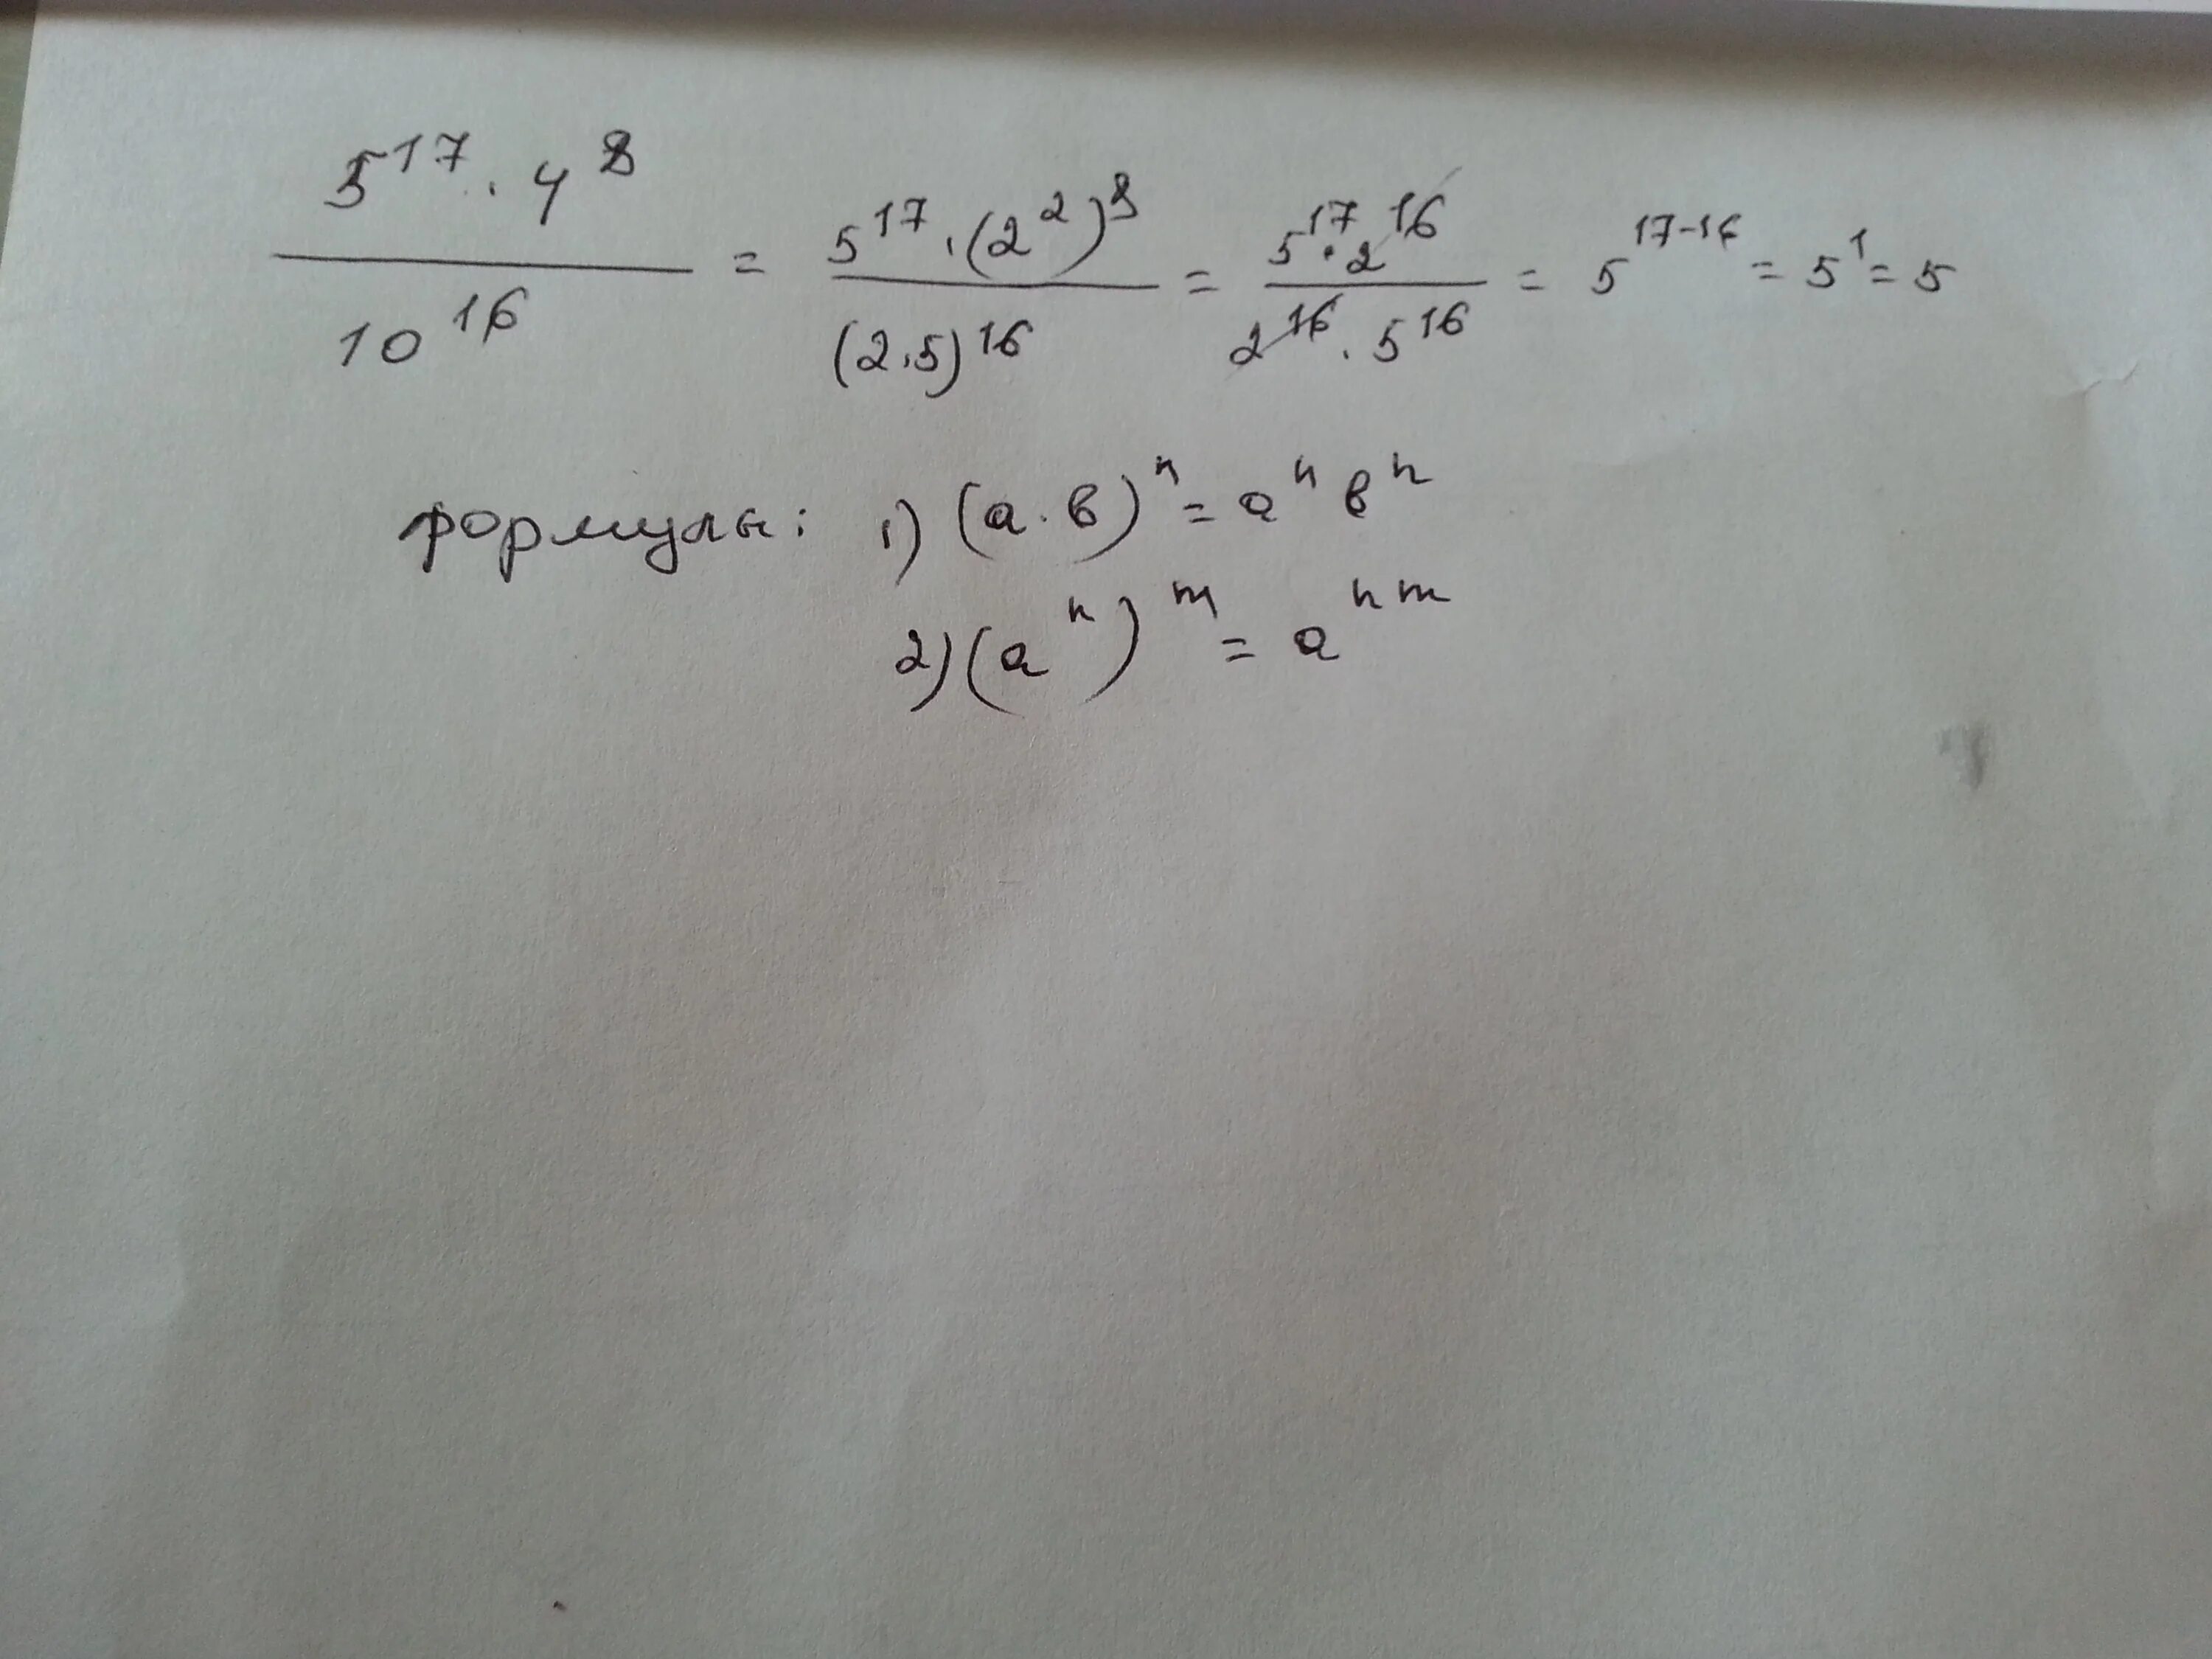 5^17 · 4^8 / 10^16 = 5^17 · (2^2)^8 / (2·5)^16 = 5^17 · 2^16 / 2^16 · 5^16 = 5^17-16 = 5^1 = 5
формулы: 1) (а · в)^n = а^n в^n
2) (а^n)^m = а^nm